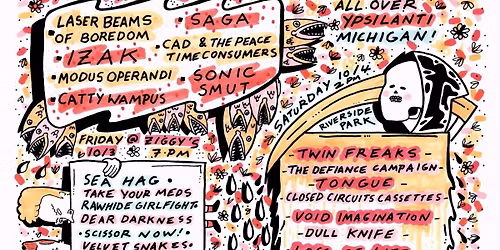 LASER BEAMS
OF BOREDOM
• SAGA
IZAK
• CAD & THE PEACE
TIME CONSUMERS
• MODUS OPERANDI
• SONIC
SMUT
• CATTY WAMPUS
ALL OVER
YPSILANTI
MICHIGAN!
FRIDAY @ ZIGGY'S
10/3 7PM
SATURDAY 10/4
2PM
RIVERSIDE
PARK
SEA HAG •
• TAKE YOUR MEDS
RAWHIDE GIRLFIGHTS
DEAR DARKNESS
• SCISSOR NOW! •
VELVET SNAKES •
- TWIN FREAKS -
- THE DEFIANCE CAMPAIGN -
- TONGUE -
- CLOSED CIRCUITS CASSETTES -
- VOID IMAGINATION -
- DULL KNIFE -